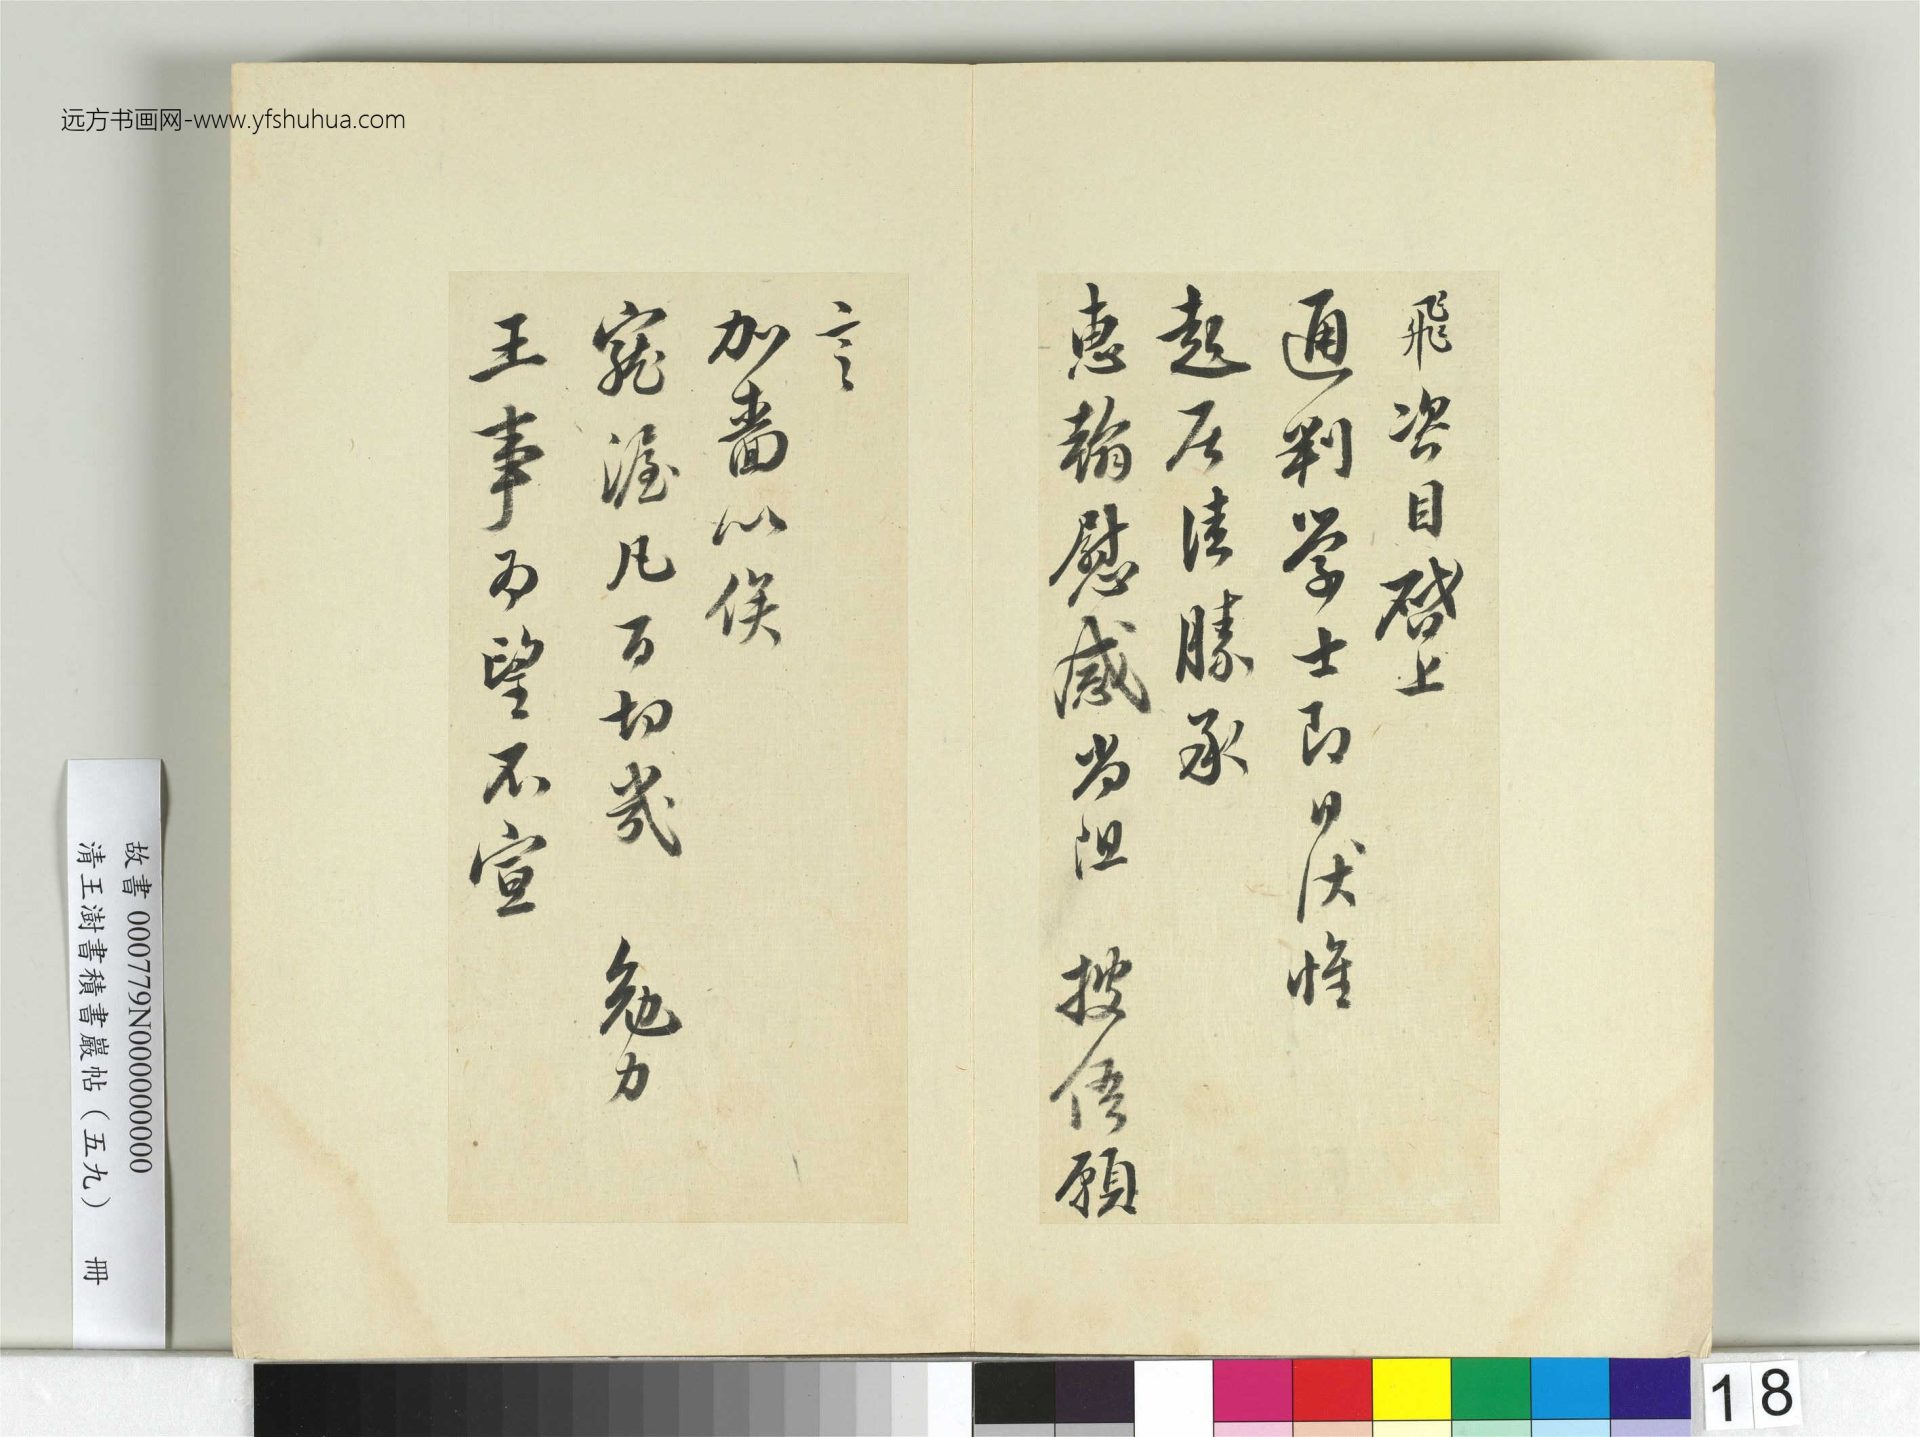 远方书画网-www.yfshuhua.com
飛咨目啓上
通判学士即日伏惟
起居佳勝承
惠翰慰感尚阻 披俉願
言
加嗇以俟
寵渥凡百切冀 勉力
王事为望不宣
故書 000779N000000000
清王澍書積書巖帖（五九） 冊
18